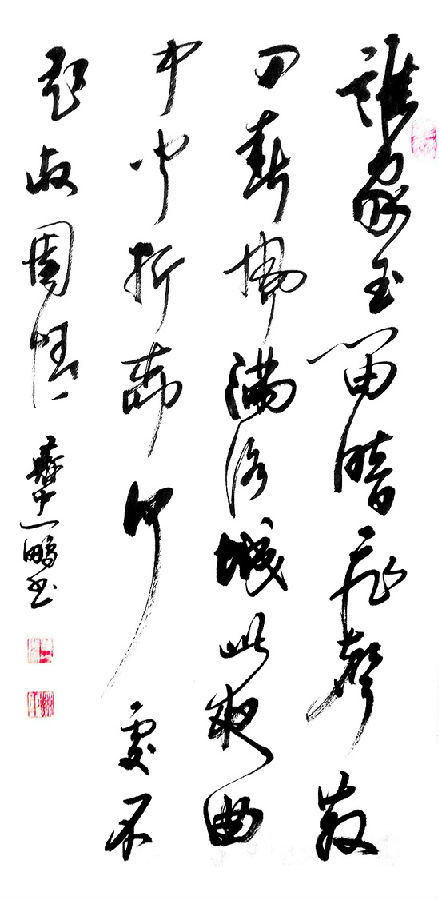 誰家玉笛暗飛聲散
春滿洛城此夜曲
中聞折何不
起故園情
一鵬書